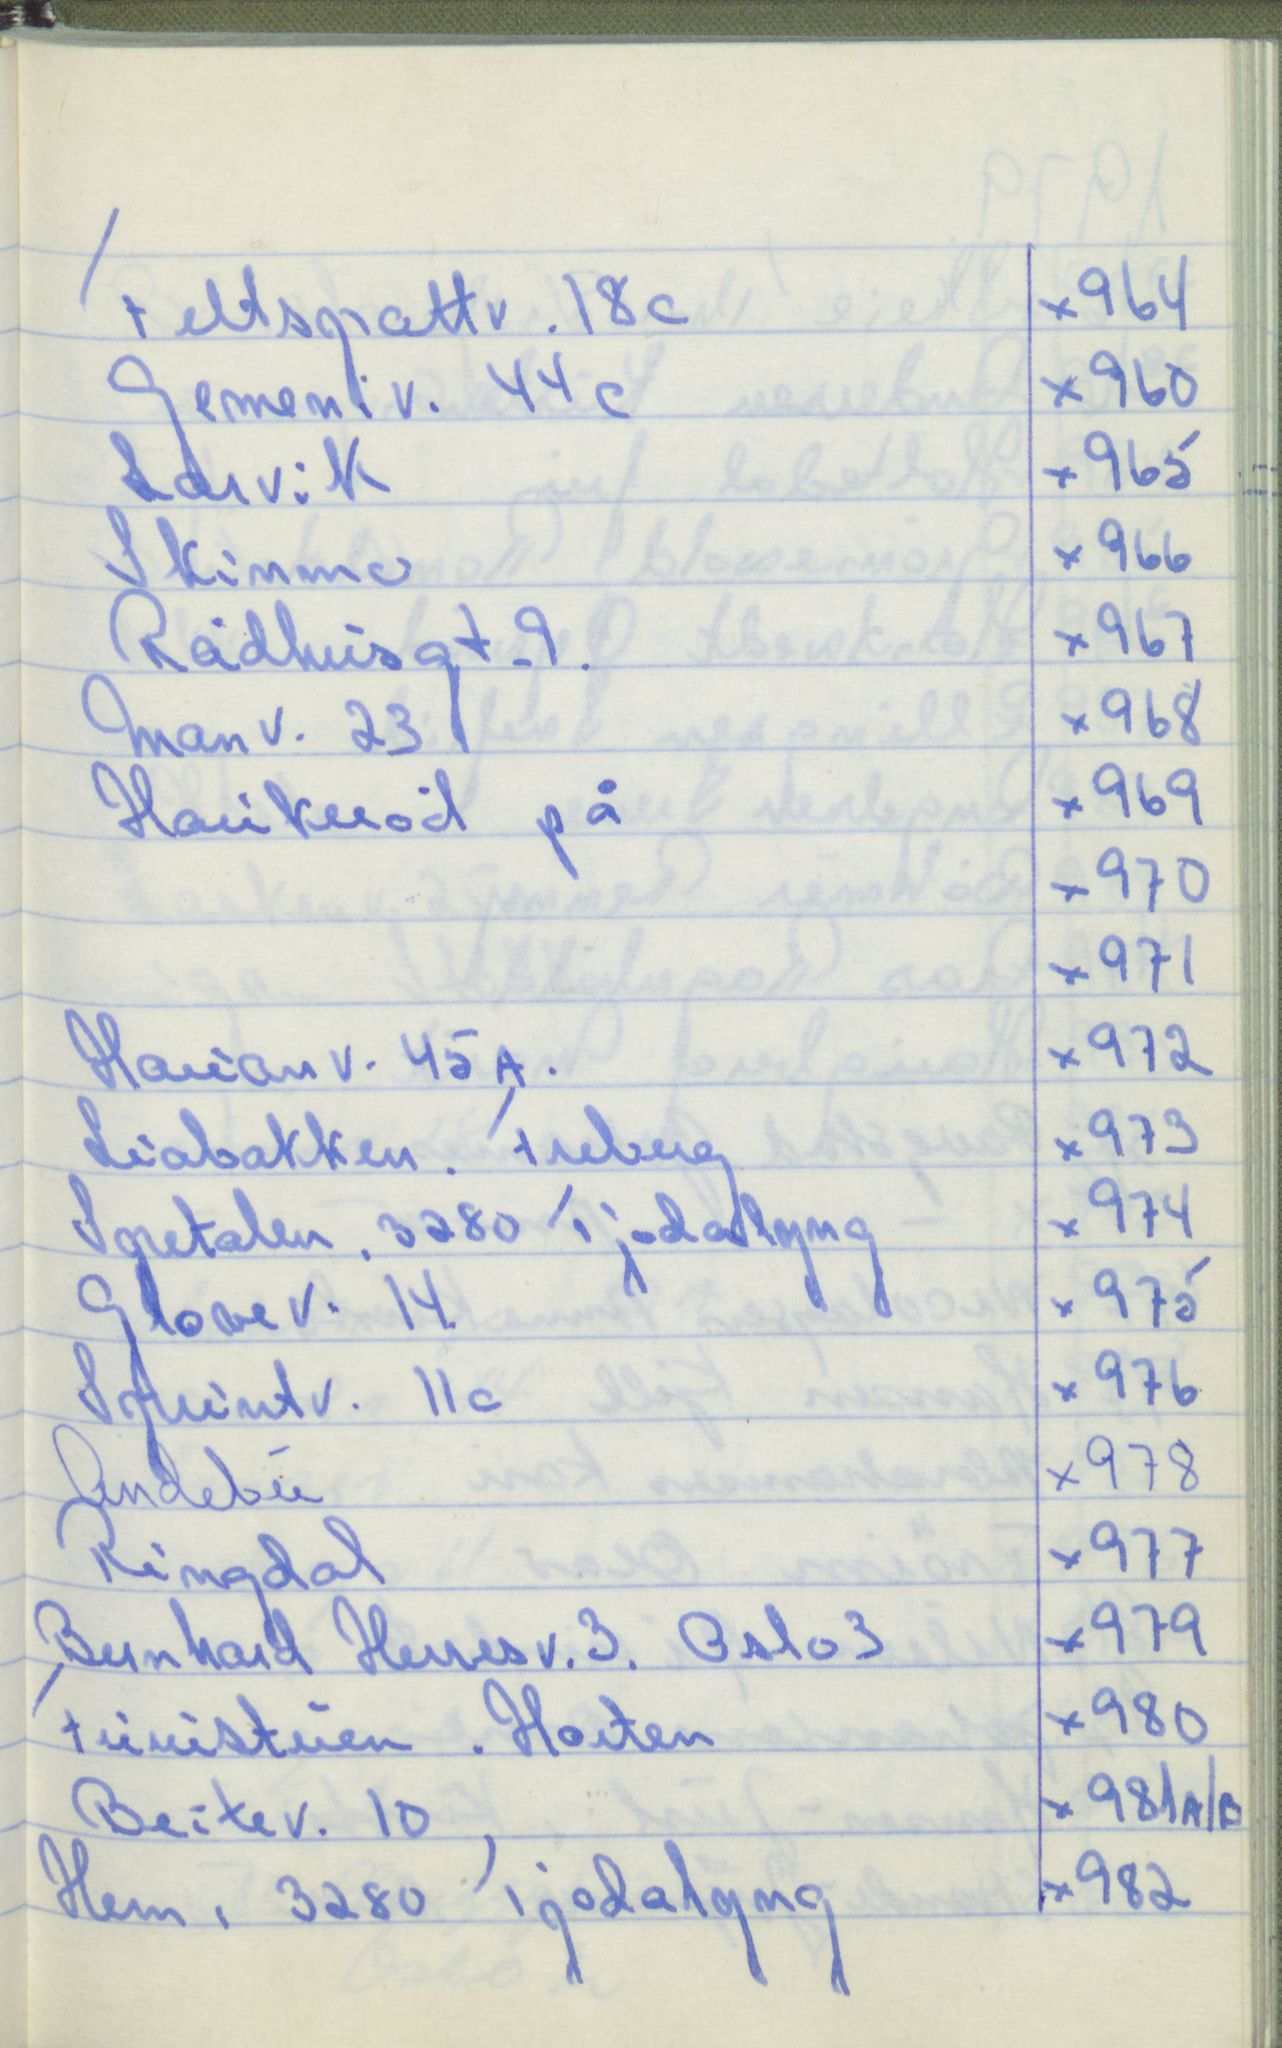 Feltspattv. 18c x 964
Gemeniv. 44c x 960
Larvik x 965
Skinmo x 966
Rådhusgt-9. x 967
Iman v. 23 x 968
Haukerød på x 969
x 970
x 971
Hauan v. 45A. x 972
Liabakken. Freberg x 973
Spetalen. 3280 Tjodalyng x 974
Glove v. 14 x 975
Spuintv. 11c x 976
Andebu x 978
Ringdal x 977
Bernhard Herres v. 3. Oslo 3 x 979
Furustuen. Horten x 980
Beitev. 10 x 981A/B
Hem, 3280 Tjodalyng x 982